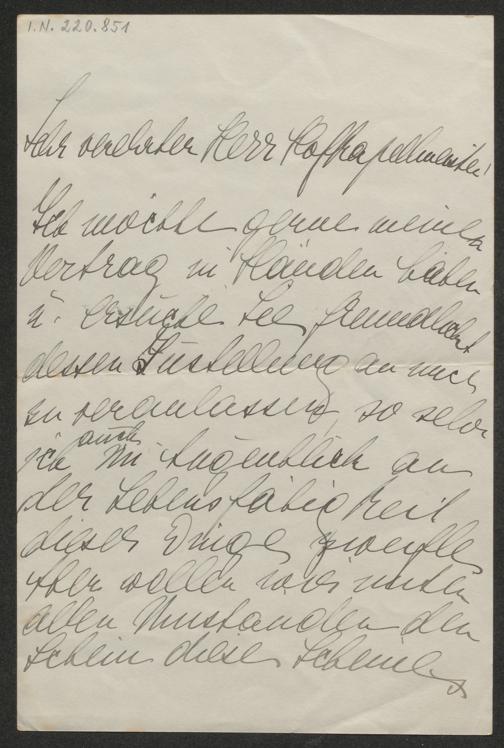 I.N. 220.851
Sehr verehrter Herr Hofkapellmeister!
Ich möchte gerne meinen
Vertrag in Händen haben
u. ersuche Sie freundlichst
dessen Zustellung an mich
zu veranlassen, so sehr
ich auch im Augenblick an
der Lebensfähigkeit
dieser Dinge zweifle
Aber wollen wir unter
allen Umständen den
Schein dieses Scheines